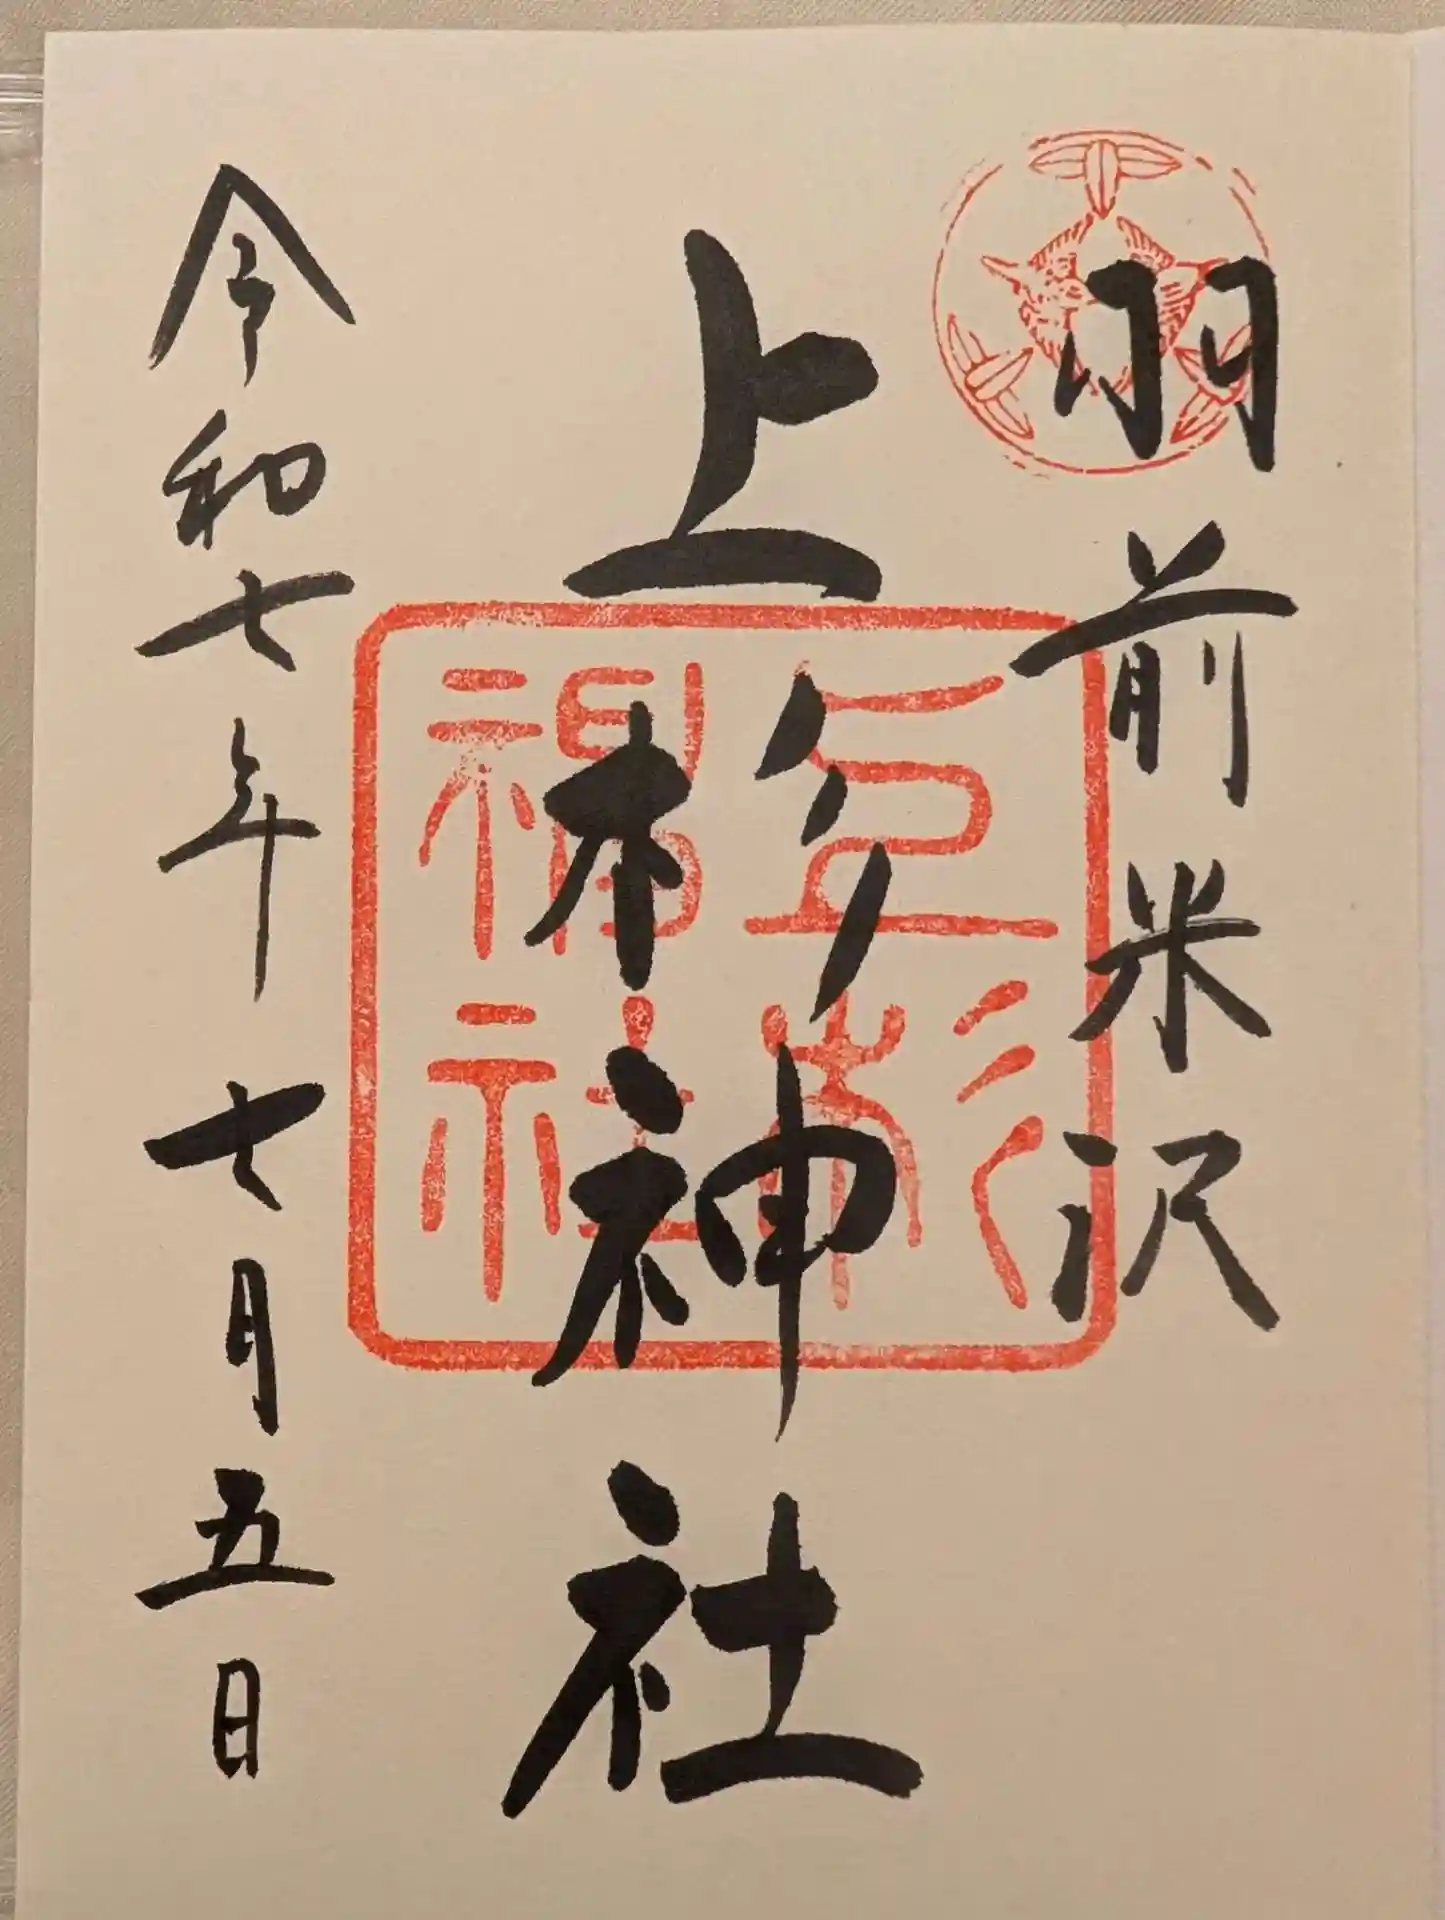 羽前米沢
上杉神社
上杉神社
令和七年七月五日